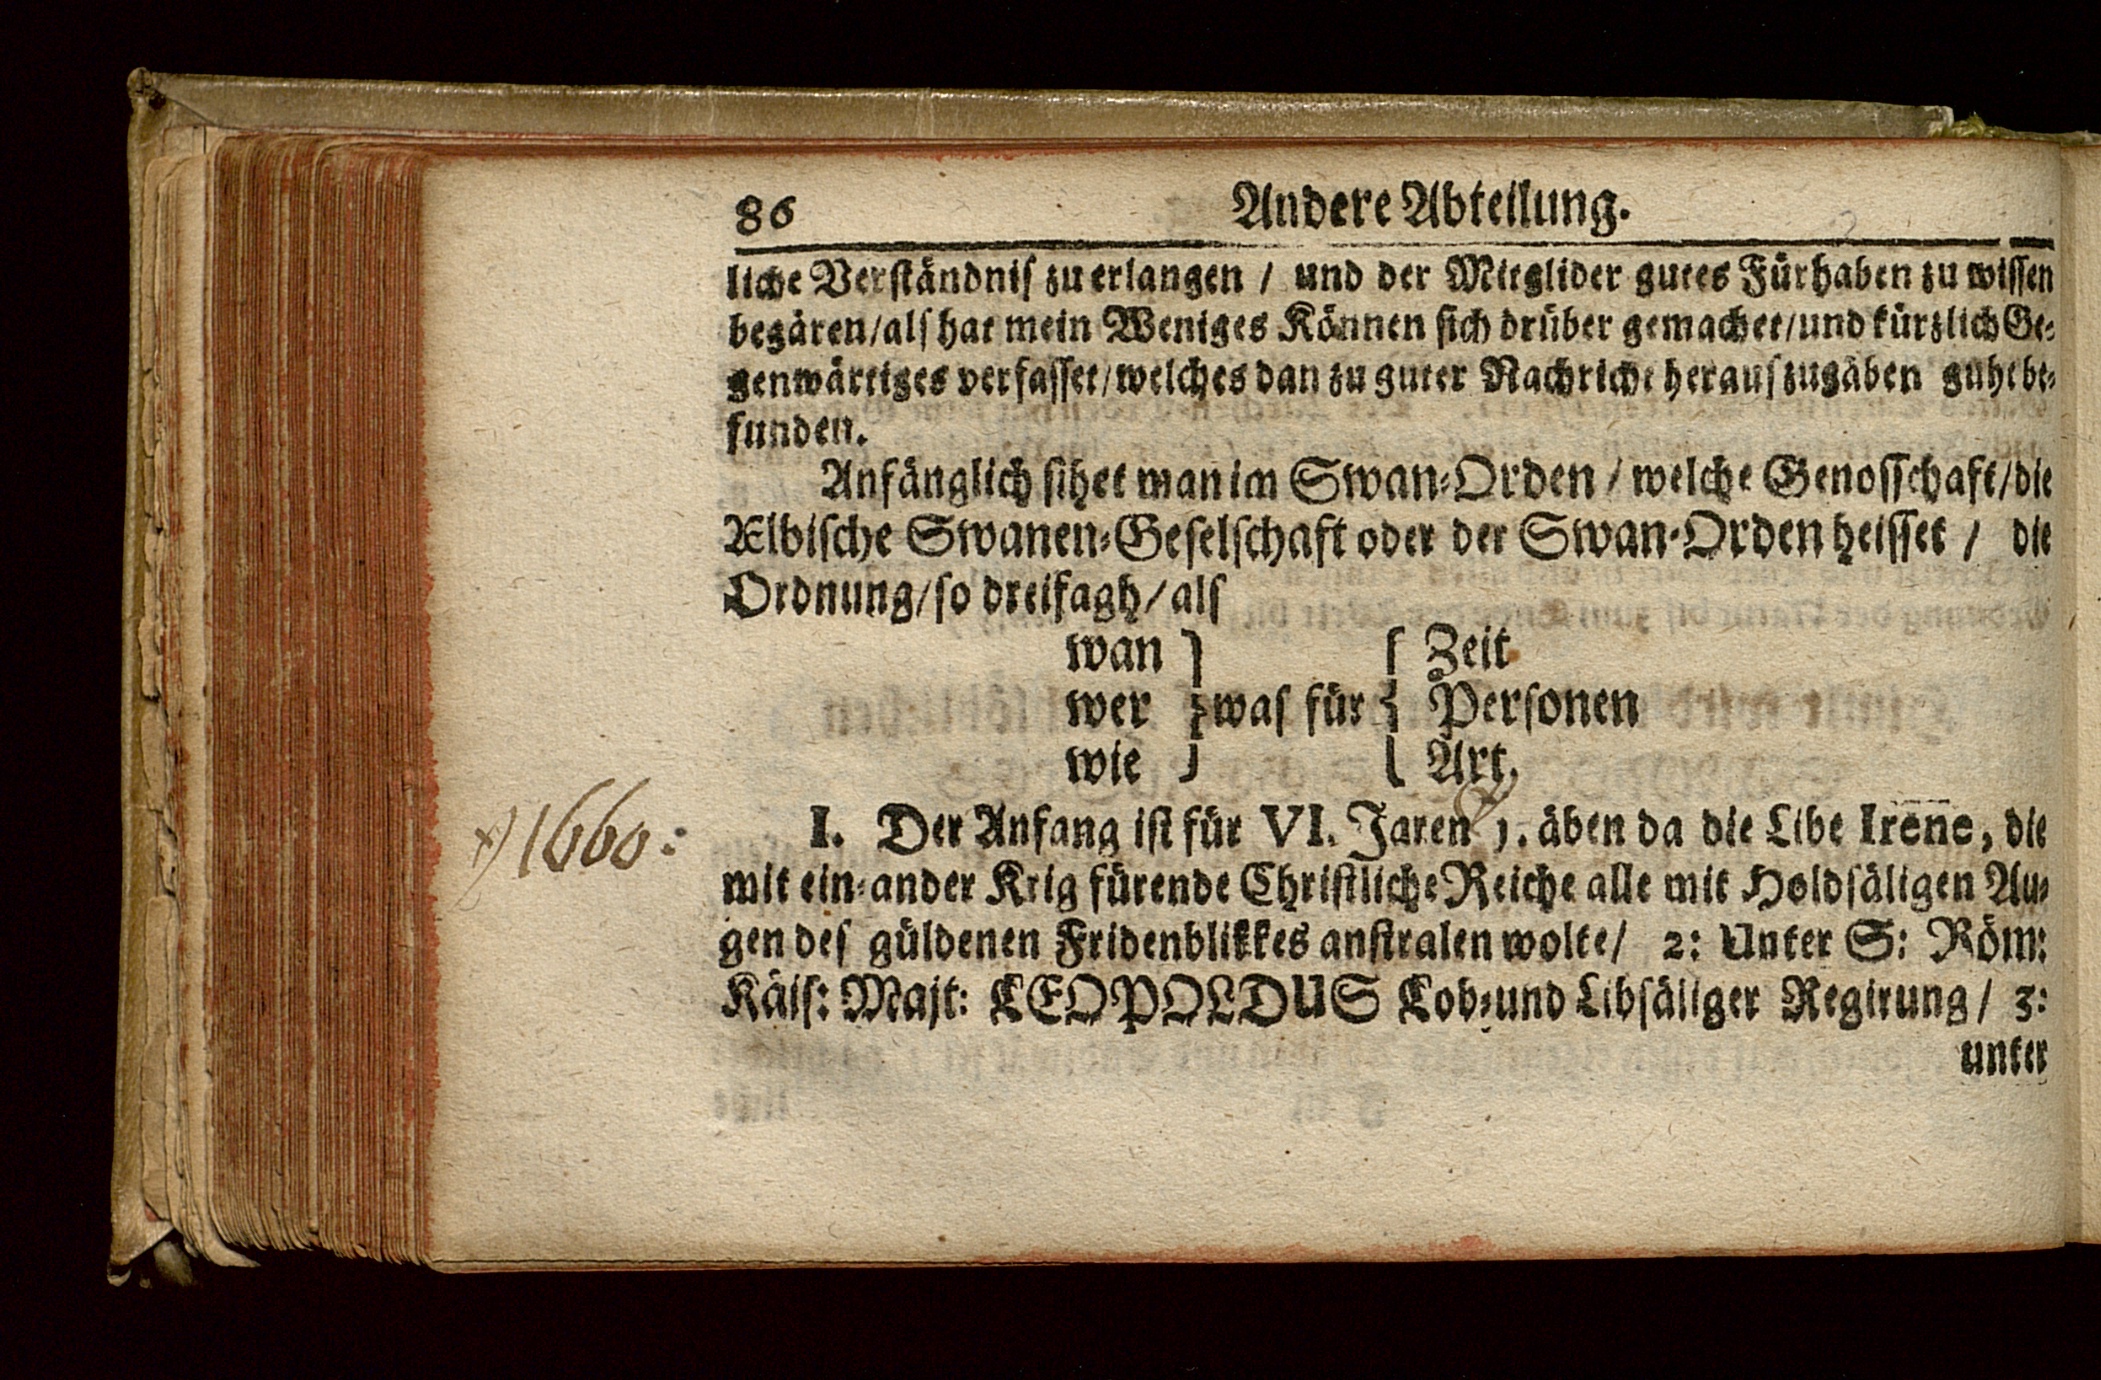 86 Andere Abteilung.
liche Verständnis zu erlangen / und der Mitglider gutes Fürhaben zu wissen
begären/als hat mein Weniges Können sich drüber gemachet/und kürzlich Ge-
genwärtiges verfasset/welches dan zu guter Nachricht herauszugäben guht be-
funden.
Anfänglich sihet man im Swan-Orden / welche Genosschaft/die
Ælbische Swanen-Geselschaft oder der Swan-Orden heisset / die
Ordnung/so dreifagh/als
wan } { Zeit
wer } was für { Personen
wie } { Art.
I. Der Anfang ist für VI. Jaren 1. äben da die Libe Irene, die
x) 1660:
mit ein-ander Krig fürende Christliche Reiche alle mit Holdsäligen Au-
gen des güldenen Fridenblikkes anstralen wolte/ 2: Unter S: Röm:
Käis: Majt: LEOPOLDUS Lob-und Libsäliger Regirung / 3:
unter